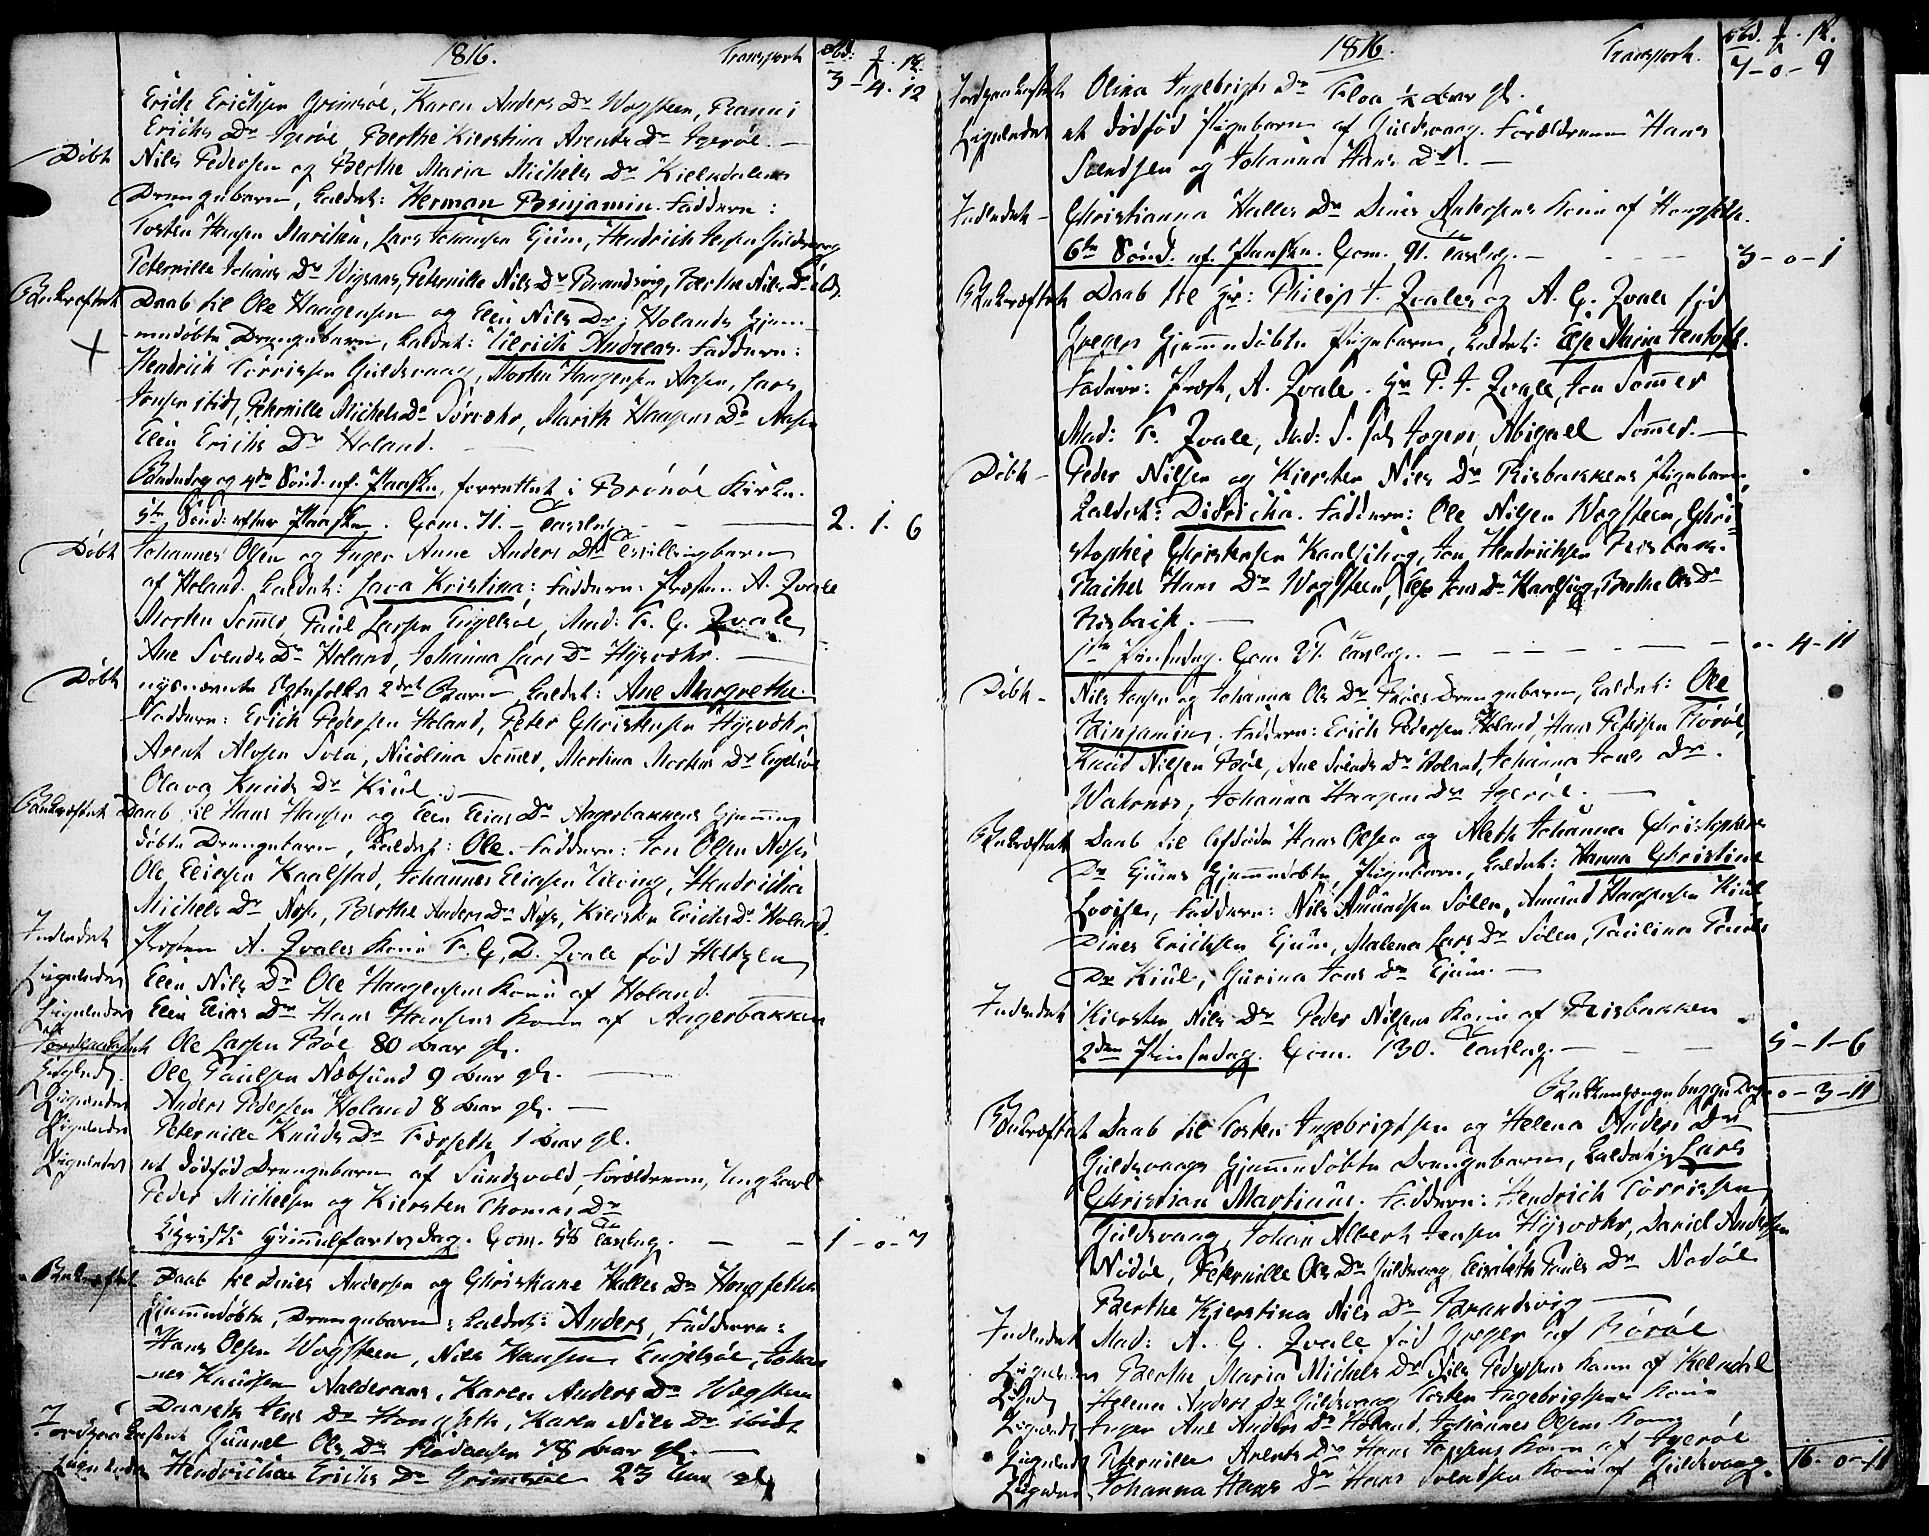 1816. Transport
3 - 4. 12
Erich Erichsen Grimsøe, Karen Anders Dr Wogsteen,
Erichs Dr Igerøe Berthe Kierstina Arents Dr Igerøe. —
Døbt Nils Pedersen og Berthe Maria Michels Dr Kielsdalens
Drengebarn, kaldet: Herman Benjamin. Faddere:
Torsten Hansen Marihn, Lars Johansen Tjüm, Hendrich Jensen Guldsvaag
Peternille Johans Dr Wigsaas, Peternille Nils Dr Brandsvig, Berthe Nils Dr
Bekræftet Daab til Ole Haagensen og Elen Nils Dr: Holands Hjem-
medøbte Drengebarn, kaldet: Ulrich Andreas. Faddere:
Hendrich Törrissen Guldsvaag, Morten Haagensen Aasen, Lars
Jonsen ibid, Peternille Michels Dr Sörvehr, Mareth Haagens Dr Aasen
Elen Erichs Dr Holand. —
Bededag og 4de Sönd. af Paaske, forrettet i Brönöe Kirke.
5te Sönd: efter Paaske. Com. 71. — 2. 1. 6
Døbt Johannes Olsen og Inger Anne Anders Drs Tvillingbarn
af Holand. kaldet: Lava Kristina: Faddere: Præsten A. Zwale
Morten Sommer, Paul Larsen Engelsøe, Mad: F. C. Zwale
Ane Svends Dr Holand, Johanna Lars Dr Hysvehr. —
Døbt nysnævnte Egtefolks 2det Barn kaldet: Ane Margrethe.
Faddere: Erich Pedersen Holand, Peter Christensen Hysvehr,
Arent Alvsen Sola, Nicolina Sommer, Martina Mortens Dr Engelsøe
Olava Knuds Dr Kiül. —
Bekræftet Daab til Hans Hansen og Elen Elias Dr Aagerbakkens Hjemme
døbte Drengebarn, kaldet: Ole. Faddere: Jon Olsen Næss
Ole Eliasen Kaalstad, Johannes Eliasen Tilving, Hendricha
Michels Dr Næss, Berthe Anders Dr Næss, Kiersten Erichs Dr Holand.
Indledet Præsten A. Zwales Kone F. C. D. Zwale fød Heltzen
Ligeledes Elen Nils Dr Ole Haagensens Kone af Holand.
Ligeledes Elen Elias Dr Hans Hansens Kone af Aagerbakken
Jordpaakastet Ole Larsen Böe 80 Aar gl.
Ligeledes Ole Paulsen Næbsund 9 Aar gl. —
Ligeledes Anders Pedersen Holand 8 Aar gl. —
Ligeledes Peternille Knuds Dr Forsette 1 Aar gl.
Ligeledes et dødfød Drengebarn af Sundsvold, Forældrene, Ungkarl
Peder Michelsen og Kiersten Thomas Dr
Christi Himmelfartsdag. Com. 58 — 1 - 0 - 7
Bekræftet Daab til Dines Andersen og Christiane Halles Dr Hongsettes
Hjemmedøbte, Drengebarn: kaldet: Anders, Faddere:
Hans Olsen Wogsteen, Nils Hansen Engelsøe, Johan-
nes Knudsen Naldernæs, Karen Anders Dr Wogsteen
Daareth Jens Dr Hongseth, Karen Nils Dr ibidt
Jordpaakastet Gunnel Ols Dr Flødaasen 78 Aar gl. —
Ligeledes Hendricha Erichs Dr Grimsøe 23 Aar gl.
1816. Transport. 7 - 0 - 9
Jordpaakastet Olina Ingebrigts Dr Floa ½ Aar gl.
Ligeledes et dødfød Pigebarn af Guldsvaag. Forældrene Hans
Svendsen og Johanna Hans Dr. —
Indledet — Christianna Halles Dr Dines Andersens Kone af Hongseth.
6te Sönd. af Paaske. Com. 91. — 3 - 0 - 1
Bekræftet Daab til Hr: Philip J. Zwales og A. C. Zwale fød
Jægers Hjemmedøbte Pigebarn, kaldet: Else Maria Jentoft.
Faddere: Præst, A. Zwale. Hr P. J. Zwale, Jon Sommer
Mad: F. Zwale, Mad: S. sal Jægers, Abigael Sommer. —
Døbt — Peder Nilsen og Kiersten Nils Dr Risbakkens Pigebarn,
kaldet: Didricha. Faddere: Ole Nilsen Wogsteen, Chri-
stopher Christensen Kaalsihog, Jon Hendrichsen Risbak.
Rachel Hans Dr Wogsteen, Else Jens Dr Kaalhog, Berthe Ols Dr
Risbak. —
1ste Pinsedag. Com 21. — 0. 4 - 11
Døbt — Nils Jensen og Johanna Ols Dr Böes Drengebarn, kaldet: Ole
Benjamin, Faddere: Erich Pedersen Holand, Hans Petersen Rörøe,
Knud Nilsen Böe, Ane Svends Dr Holand, Johanna Jens Dr.
Watnæs, Johanna Haagens Dr Igerøe. —
Bekræftet Daab til Afdøde Hans Olsen og Aleth Johanna Christophers
Dr Tjüms Hjemmedøbte Pigebarn, kaldet: Hanna Christine
Lovise, Faddere: Nils Amundsen Sölen, Amund Haagensen Kiül,
Dines Erichsen Tjüm, Malena Lars Dr Sölen, Paulina Pouls
Dr Kiül, Gurina Jens Dr Tjüm. —
Indledet Kiersten Nils Dr Peder Nilsens Kone af Risbakken
2den Pinsedag. Com. 130. — 5 - 1 - 6
0 - 3 - 11
Bekræftet Daab til Torsten Ingebrigtsen og Helena Anders Dr
Guldsvaags Hjemmedøbte Drengebarn, kaldet: Lars
Christian Martinus. Faddere: Hendrich Törrissen
Guldsvaag, Johan Albert Jensen Hysvehr, Daniel Andersen
Nødøe, Peternille Ols Dr Guldsvaag, Elisabeth Pouls Dr Nødøe
Berthe Kierstina Nils Dr Brandsvig —
Indledet Mad: A. C. Zwale fød Jæger af Rörøe
Ligeledes Berthe Maria Michels Dr Nils Pedersens Kone af Kelndal
Ligeledes Helena Anders Dr Guldsvaag Torsten Ingebrigtsens Kone
Ligeledes Inger Ane Anders Dr Holand, Johannes Olsens Kone
Ligeledes Peternille Arents Dr Hans Kone af Igerøe
Ligeledes Johanna Hans Dr Hans Svendsens Kone af Guldsvaag. 16 - 0 - 11